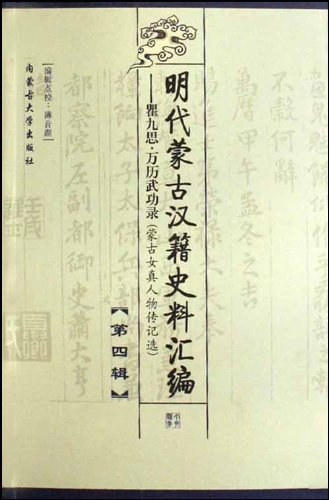 明代蒙古汉籍史料汇编
——瞿九思·万历武功录(蒙古女真人物传记选)
【第四辑】
编辑点校:薄音湖
内蒙古大学出版社
不穀何辭
萬曆甲午孟冬之吉
都察院左副都御史蕭大亨